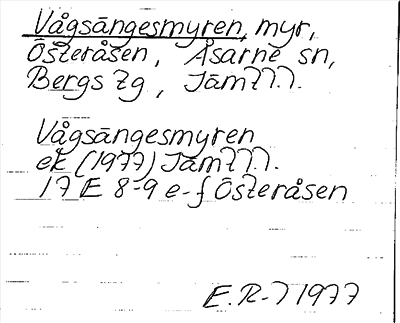 Vågsängesmyren, myr,
Österåsen, Åsarne sn,
Bergs tg, Jämtl.
Vågsängesmyren
ek (1977) Jämtl.
17 E 8-9 e-f Österåsen
E.R-l 1977